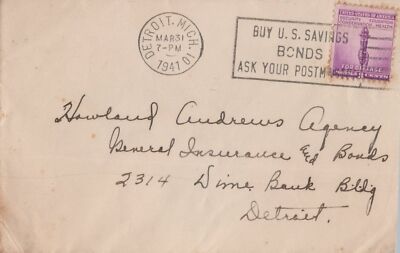 DETROIT, MICH. 10
MAR 31
7-PM
1941
BUY U.S. SAVINGS
BONDS
ASK YOUR POSTM
UNITED STATES OF AMERICA
SECURITY EDUCATION
CONSERVATION HEALTH
FOR DEFENSE
CENTS
Howland Andrews Agency
General Insurance Ed Bonds
2314 Dime Bank Bldg
Detroit.